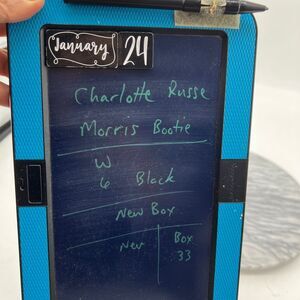 January 24
Charlotte Russe
Morris Bootie
W
6 Black
New Box
New Box
33